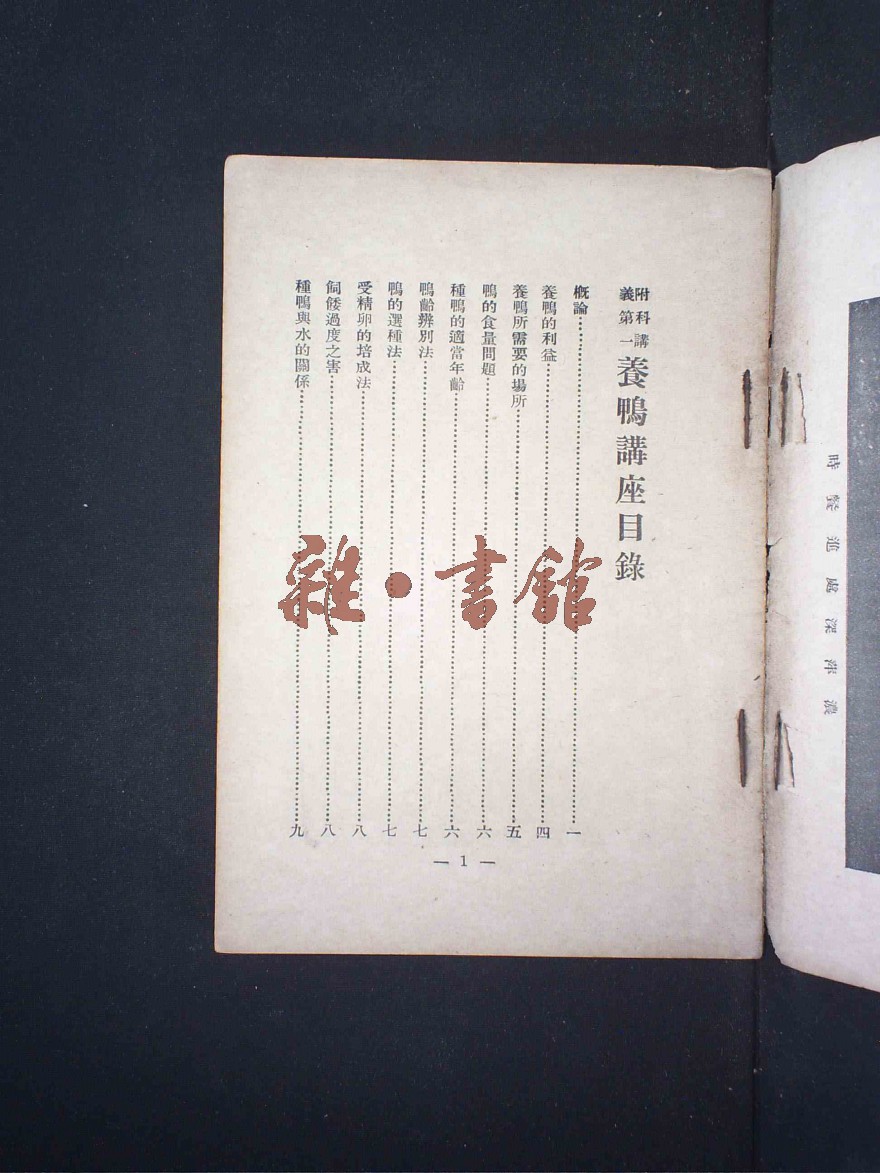 濃萍深處進餐時
附科講
義第一
養鴨講座目錄
概論……一
養鴨的利益……四
養鴨所需要的場所……五
鴨的食量問題……六
種鴨的適當年齡……六
鴨齡辨別法……七
鴨的選種法……七
受精卵的培成法……八
飼餧過度之害……八
種鴨與水的關係……九
— 1 —
雜·書館